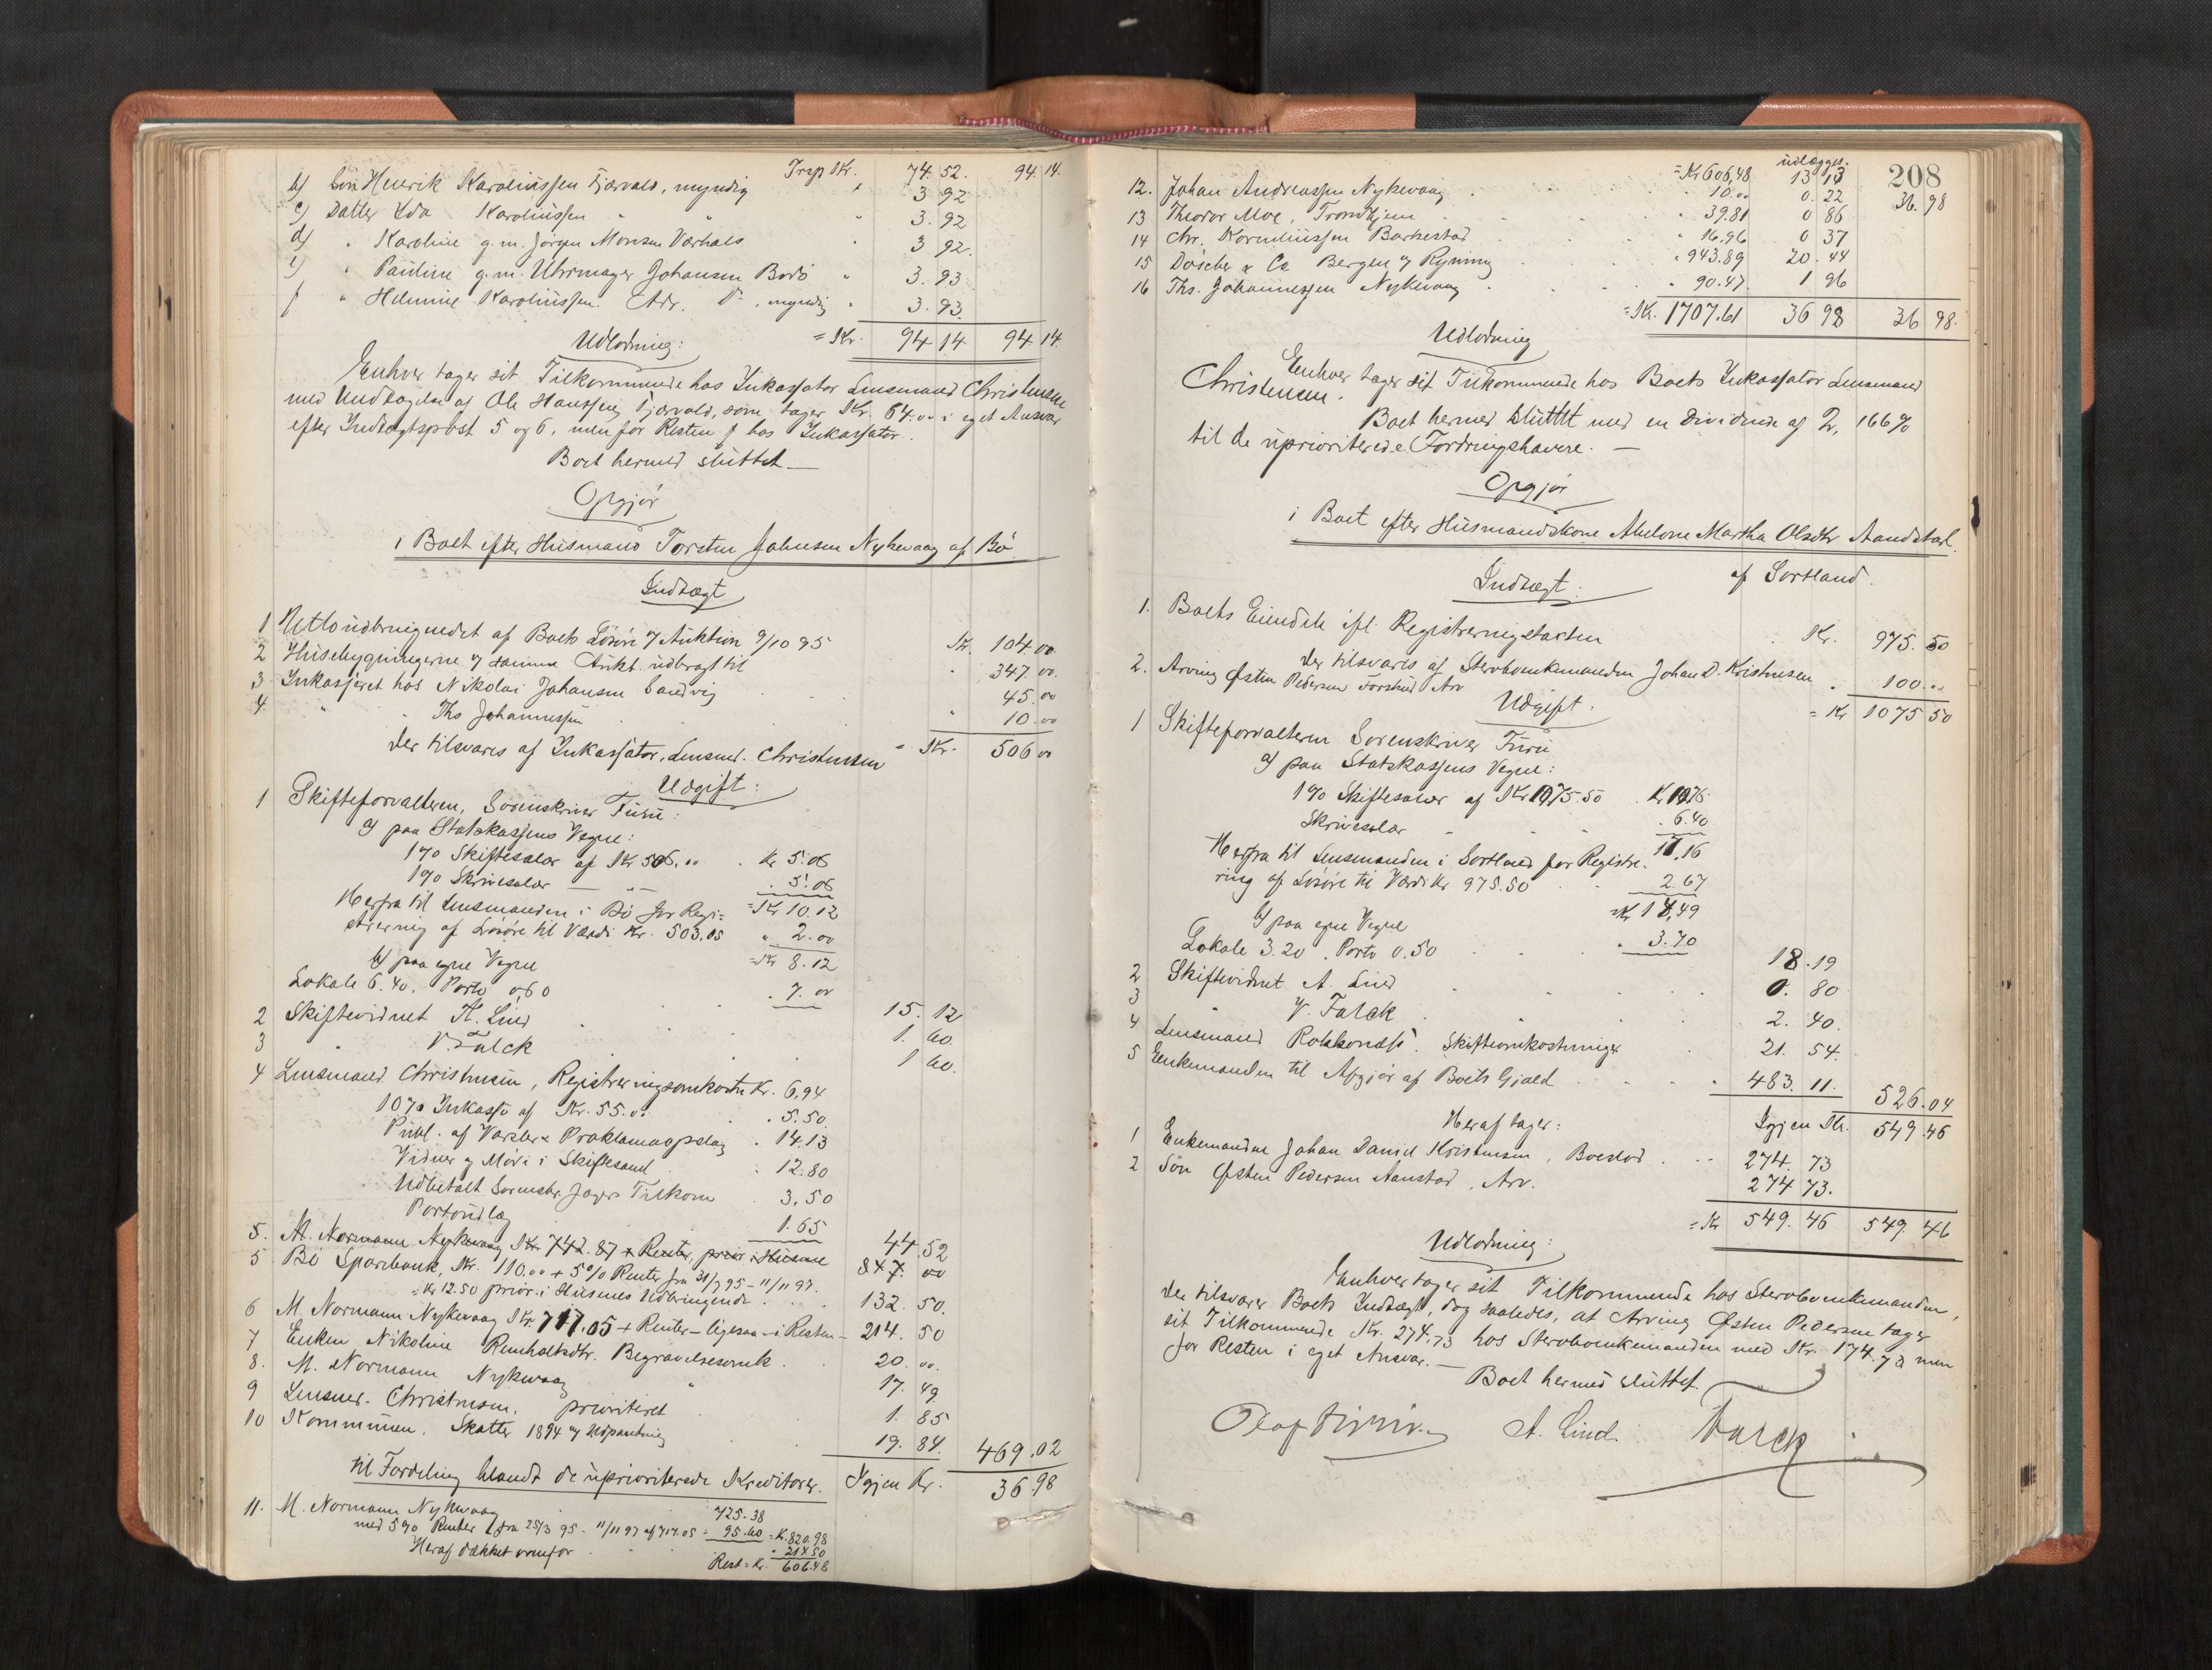 Trsp Kr. 74. 52. 94 14.
b) Søn Henrik Karoliussen Fjærvold, myndig " 3 92
c) Datter Ida Karoliussen " " " 3. 92
d) " Karoline g. m. Jørgen Monsen Værhals " 3 92.
e) " Pauline g. m. Uhrmager Johansen Bodö " 3. 93
f " Helmine Karoliussen. Adr. Do, myndig " 3. 93.
= Kr. 94 14 94 14.
Udlodning:
Enhver tager sit Tilkommende hos Inkassator Lensmand Christensen
med Undtagelse af Ole Hanssen Fjærvold, som tager Kr. 64.00 i eget Ansvar
efter Indtægtspost 5 og 6, men for Resten hos Inkassator.
Boet hermed sluttet —
Opgjør
i Boet efter Husmand Torsten Johnsen Nykevaag af Bö
Indtægt
1 Nettoudbringendet af Boets Løsøre v/ Auktion 9/10 95 Kr. 104.00
2 Husebygningerne v/ samme Aukt. udbragt til " 347. 00.
3 Inkasseret hos Nikolai Johansen Sandvig " 45. 00
4 " " Ths Johannessen " 10. 00
der tilsvares af Inkassator, Lensmd. Christensen = Kr. 506 00
Udgift:
1 Skifteforvalteren, Sorenskriver Furu:
a) paa Statskassens Vegne:
1% Skiftesalær af Kr 506.00 . Kr 5.06
1% Skrivesalær — " — . 5.06
=Kr 10.12
Herfra til Lensmanden i Bö for Regi=
strering af Løsøre til Værdi Kr. 503,05 " 2.00
=Kr 8.12
b) paa egne Vegne
Lokale 6.40. Porto 0,60 . 7.00
15. 12
2 Skiftevidnet A. Lind 1. 60.
3 " V. Falck 1 60.
4 Lensmand Christensen, Registreringsomkostn Kr. 6,94
10% Inkasso af Kr. 55.00 . 5.50
Publ. af Varsler & Proklamaopslag . 14.13
Vidner v/ Møde i Skiftesaml . 12.80
Udbetalt Sorenskr. Jagers Tilkom . 3.50
Portoudlæg 1.65
44. 52
5. M. Normann Nykevaag Kr. 742.87 + Renter, prior. i Husene 847. 00
5 Bö Sparebank, Kr. 110.00 + 5% Renter fra 31/7 95 - 11/11 97.
= Kr 12.50 prior. i Husenes Udbringende 132. 50.
6 M. Normann Nykevaag Kr. 717.05 + Renter - ligesaa - i Resten - 214. 50
7 Enken Nikoline Reinholtsdtr. Begravelsesomk. 20. 00.
8. M. Normann Nykevaag " 17. 49.
9 Lensmd. Christensen, prioriteret 1. 85
10 Kommunen, Skatter 1894 v/ Udpantning 19. 84. 469.02
til Fordeling blandt de uprioriterede Kreditorer. Igjen Kr. 36.98
11. M. Normann Nykevaag 725.38
med 5% Renter fra 25/3 95 - 11/11 97 af 717.05 = 95.60 = K. 820.98
Heraf dækket ovenfor . 214.50
Rest = Kr. 606.48
208
udlægges.
= Kr 606,48 13 13 36. 98
12. Johan Andreassen Nykevaag " 10.00 0. 22
13 Theodor Moe, Trondhjem " 39.81 0 86
14 Chr. Korneliussen Barkestad " 16.96 0 37
15 Döscher & Co Bergen v/ Rynning " 943.89 20. 44
16 Ths. Johannessen Nykevaag " 90.47 1 96
= Kr. 1707.61 36 98 36 98.
Udlodning
Enhver tager sit Tilkommende hos Boets Inkassator Lensmand
Christensen.
Boet hermed sluttet med en Dividende af 2, 166%
til de uprioriterede Fordringshavere. —
Opgjør
i Boet efter Husmandskone Abelone Martha Olsdtr Aandstad.
af Sortland.
Indtægt:
1. Boets Eiendele ifl. Registreringstaxten . Kr. 975. 50
der tilsvares af Sterboenkemanden Johan D. Kristensen
2. Arving Østen Pedersen Forskud Arv " 100.00
= Kr 1075 50
Udgift.
1 Skifteforvalteren Sorenskriver Furu
a) paa Statskassens Vegne:
1% Skiftesalær af Kr 1075.50 . Kr 10.76
Skrivesalær . 6.40
17,16
Herfra til Lensmanden i Sortland for Registre-
ring af Løsøre til Værdi Kr 975.50 2.67
= Kr 14,49
b) paa egne Vegne
Lokale 3.20. Porto 0.50 " 3.70
18.19
2 Skiftevidnet A. Lind 0. 80
3 " V. Falck 2. 40.
4 Lensmand Skifteomkostninger 21. 54.
5 Enkemanden til Afgjør af Boets Gjæld " 483. 11. 526.04
Heraf tager: Igjen Kr. 549.46
1 Enkemanden Johan Daniel Kristensen, Boeslod 274. 73
2 Søn Østen Pedersen Aanstad, Arv. 274 73.
= Kr 549. 46 549 46
Udlodning:
Enhver tager sit Tilkommende hos Sterboenkemanden,
der tilsvarer Boets Indtægt, dog saaledes, at Arving Østen Pedersen tager
sit Tilkommende Kr. 274,73 hos Sterboenkemanden med Kr. 174.73 men
for Resten i eget Ansvar. —
Boet hermed sluttet.
A. Lind. Falck